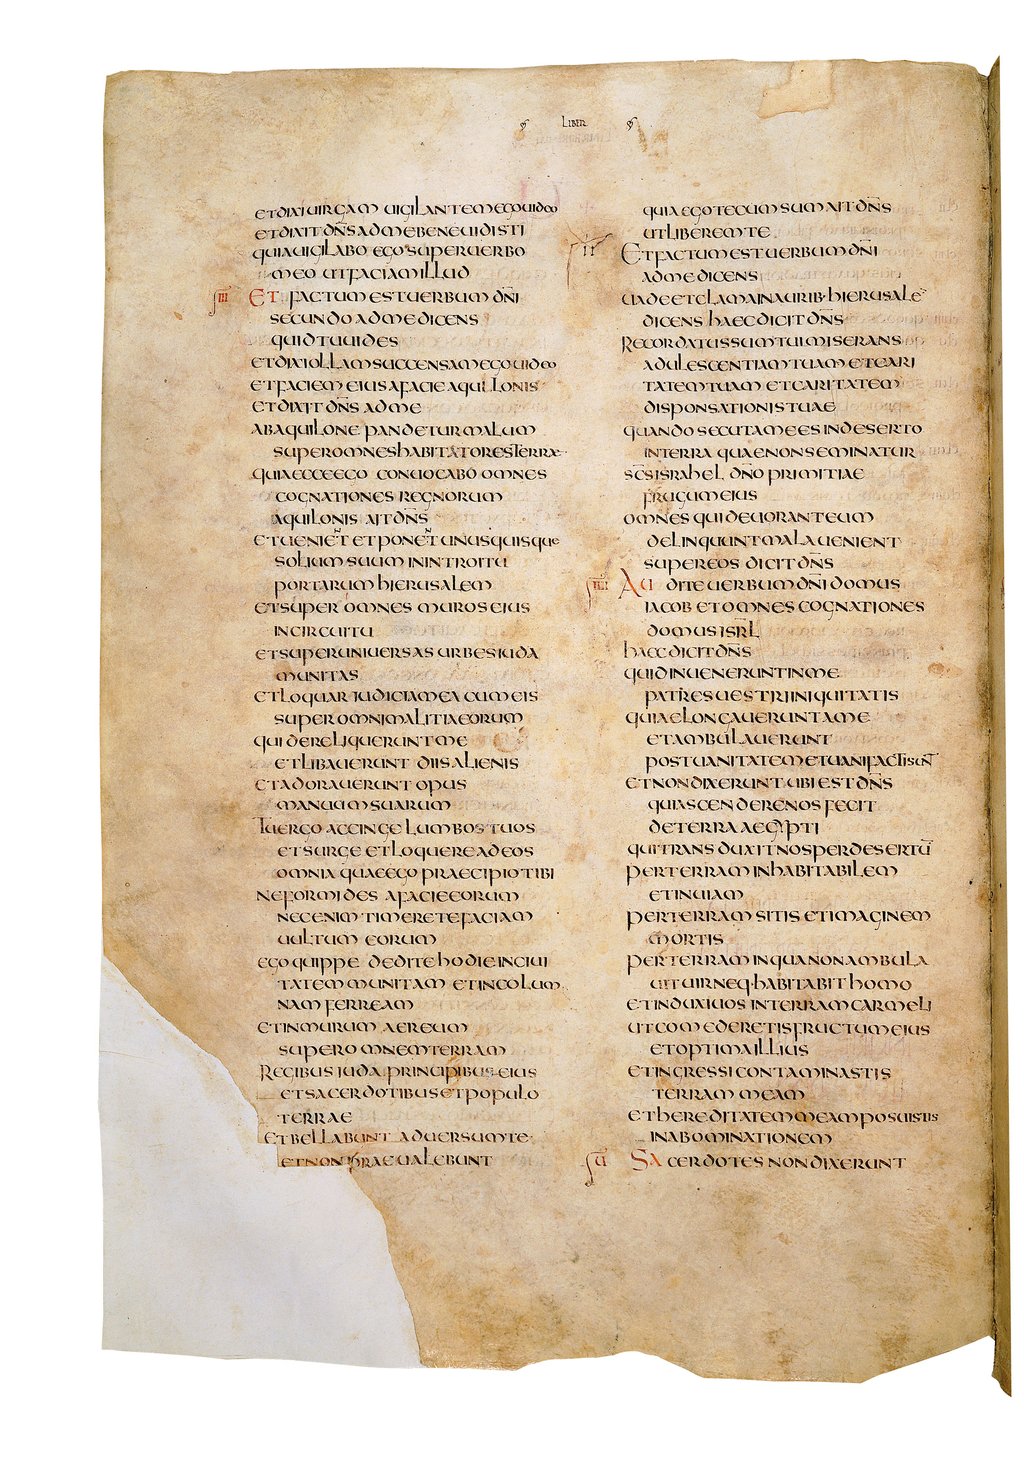 LIBER
ET DIXI UIRGAM UIGILANTEM EGO UIDEO
ET DIXIT DN̄S AD ME BENE UIDISTI
QUIA UIGILABO EGO SUPER UERBO
MEO UT FACIAM ILLUD
III ET FACTUM EST UERBUM DN̄I
SECUNDO AD ME DICENS
QUID TU UIDES
ET DIXI OLLAM SUCCENSAM EGO UIDEO
ET FACIEM EIUS A FACIE AQUILONIS
ET DIXIT DN̄S AD ME
AB AQUILONE PANDETUR MALUM
SUPER OMNES HABITATORES TERRAE
QUIA ECCE EGO CONUOCABO OMNES
COGNATIONES REGNORUM
AQUILONIS AIT DN̄S
ET UENIENT ET PONENT UNUSQUISQUE
SOLIUM SUUM IN INTROITU
PORTARUM HIERUSALEM
ET SUPER OMNES MUROS EIUS
IN CIRCUITU
ET SUPER UNIUERSAS URBES IUDA
MUNITAS
ET LOQUAR IUDICIA MEA CUM EIS
SUPER OMNI MALITIA EORUM
QUI DERELIQUERUNT ME
ET LIBAUERUNT DIIS ALIENIS
ET ADORAUERUNT OPUS
MANUUM SUARUM
TU ERGO ACCINGE LUMBOS TUOS
ET SURGE ET LOQUERE AD EOS
OMNIA QUAE EGO PRAECIPIO TIBI
NE FORMIDES A FACIE EORUM
NEC ENIM TIMERE TE FACIAM
UULTUM EORUM
EGO QUIPPE DEDI TE HODIE IN CIUI
TATEM MUNITAM ET IN COLUM
NAM FERREAM
ET IN MURUM AEREUM
SUPER OMNEM TERRAM
REGIBUS IUDA PRINCIPIBUS EIUS
ET SACERDOTIBUS ET POPULO
TERRAE
ET BELLABUNT ADUERSUM TE
ET NON PRAEUALEBUNT
QUIA EGO TECUM SUM AIT DN̄S
UT LIBEREM TE
II ET FACTUM EST UERBUM DN̄I
AD ME DICENS
UADE ET CLAMA IN AURIB· HIERUSALĒ
DICENS HAEC DICIT DN̄S
RECORDATUS SUM TUI MISERANS
ADULESCENTIAM TUAM ET CARI
TATEM TUAM ET CARITATEM
DISPONSATIONIS TUAE
QUANDO SECUTA ME ES IN DESERTO
IN TERRA QUAE NON SEMINATUR
SC̄S ISRAHEL DN̄O PRIMITIAE
FRUGUM EIUS
OMNES QUI DEUORANT EUM
DELINQUUNT MALA UENIENT
SUPER EOS DICIT DN̄S
IIII AUDITE UERBUM DN̄I DOMUS
IACOB ET OMNES COGNATIONES
DOMUS ISR̄L
HAEC DICIT DN̄S
QUID INUENERUNT IN ME
PATRES UESTRI INIQUITATIS
QUIA ELONGAUERUNT A ME
ET AMBULAUERUNT
POST UANITATEM ET UANI FACTI SUNT
ET NON DIXERUNT UBI EST DN̄S
QUI ASCENDERE NOS FECIT
DE TERRA AEGYPTI
QUI TRANSDUXIT NOS PER DESERTŪ
PER TERRAM INHABITABILEM
ET INUIAM
PER TERRAM SITIS ET IMAGINEM
MORTIS
PER TERRAM IN QUA NON AMBULA
UIT UIR NEQ· HABITABIT HOMO
ET INDUXI UOS IN TERRAM CARMELI
UT COMEDERETIS FRUCTUM EIUS
ET OPTIMA ILLIUS
ET INGRESSI CONTAMINASTIS
TERRAM MEAM
ET HEREDITATEM MEAM POSUISTIS
IN ABOMINATIONEM
U SACERDOTES NON DIXERUNT